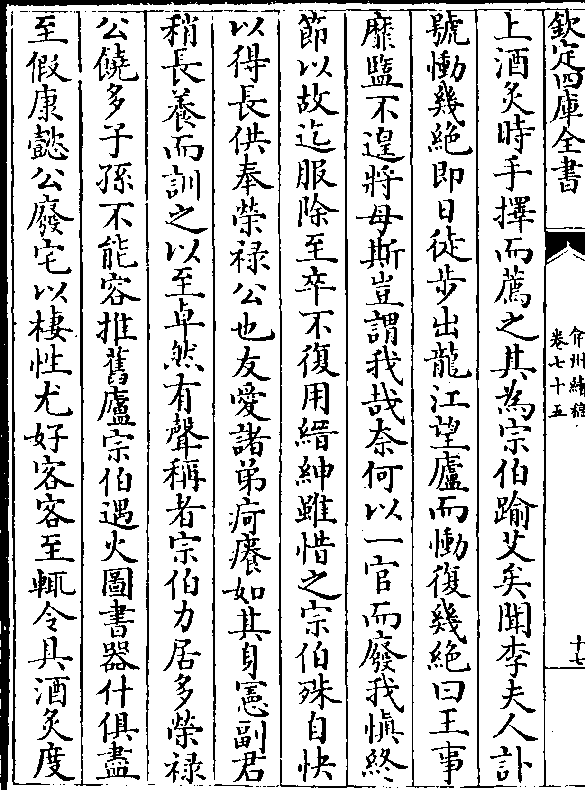 欽定四庫全書
弇州續稿
卷七十五
十七
上酒炙時手擇而薦之其為宗伯踰艾矣聞李夫人訃
號慟幾絶即日徒步出龍江望廬而慟復幾絶曰王事
靡盬不遑將母斯豈謂我哉奈何以一官而廢我慎終
節以故迄服除至卒不復用縉紳雖惜之宗伯殊自快
以得長供奉榮禄公也友愛諸弟疴癢如其身憲副君
稍長養而訓之以至卓然有聲稱者宗伯力居多榮禄
公饒多子孫不能容推舊廬宗伯遇火圖書器什俱盡
至假康懿公廢宅以棲性尤好客客至輒令具酒炙度